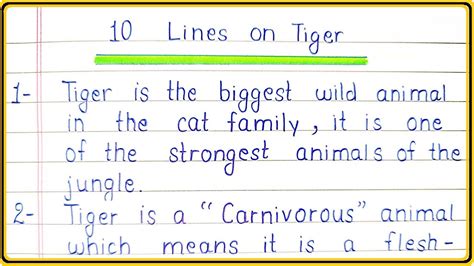 10 Lines on Tiger
1- Tiger is the biggest wild animal
in the cat family, it is one
of the strongest animals of the
jungle.
2- Tiger is a "Carnivorous" animal
which means it is a flesh-